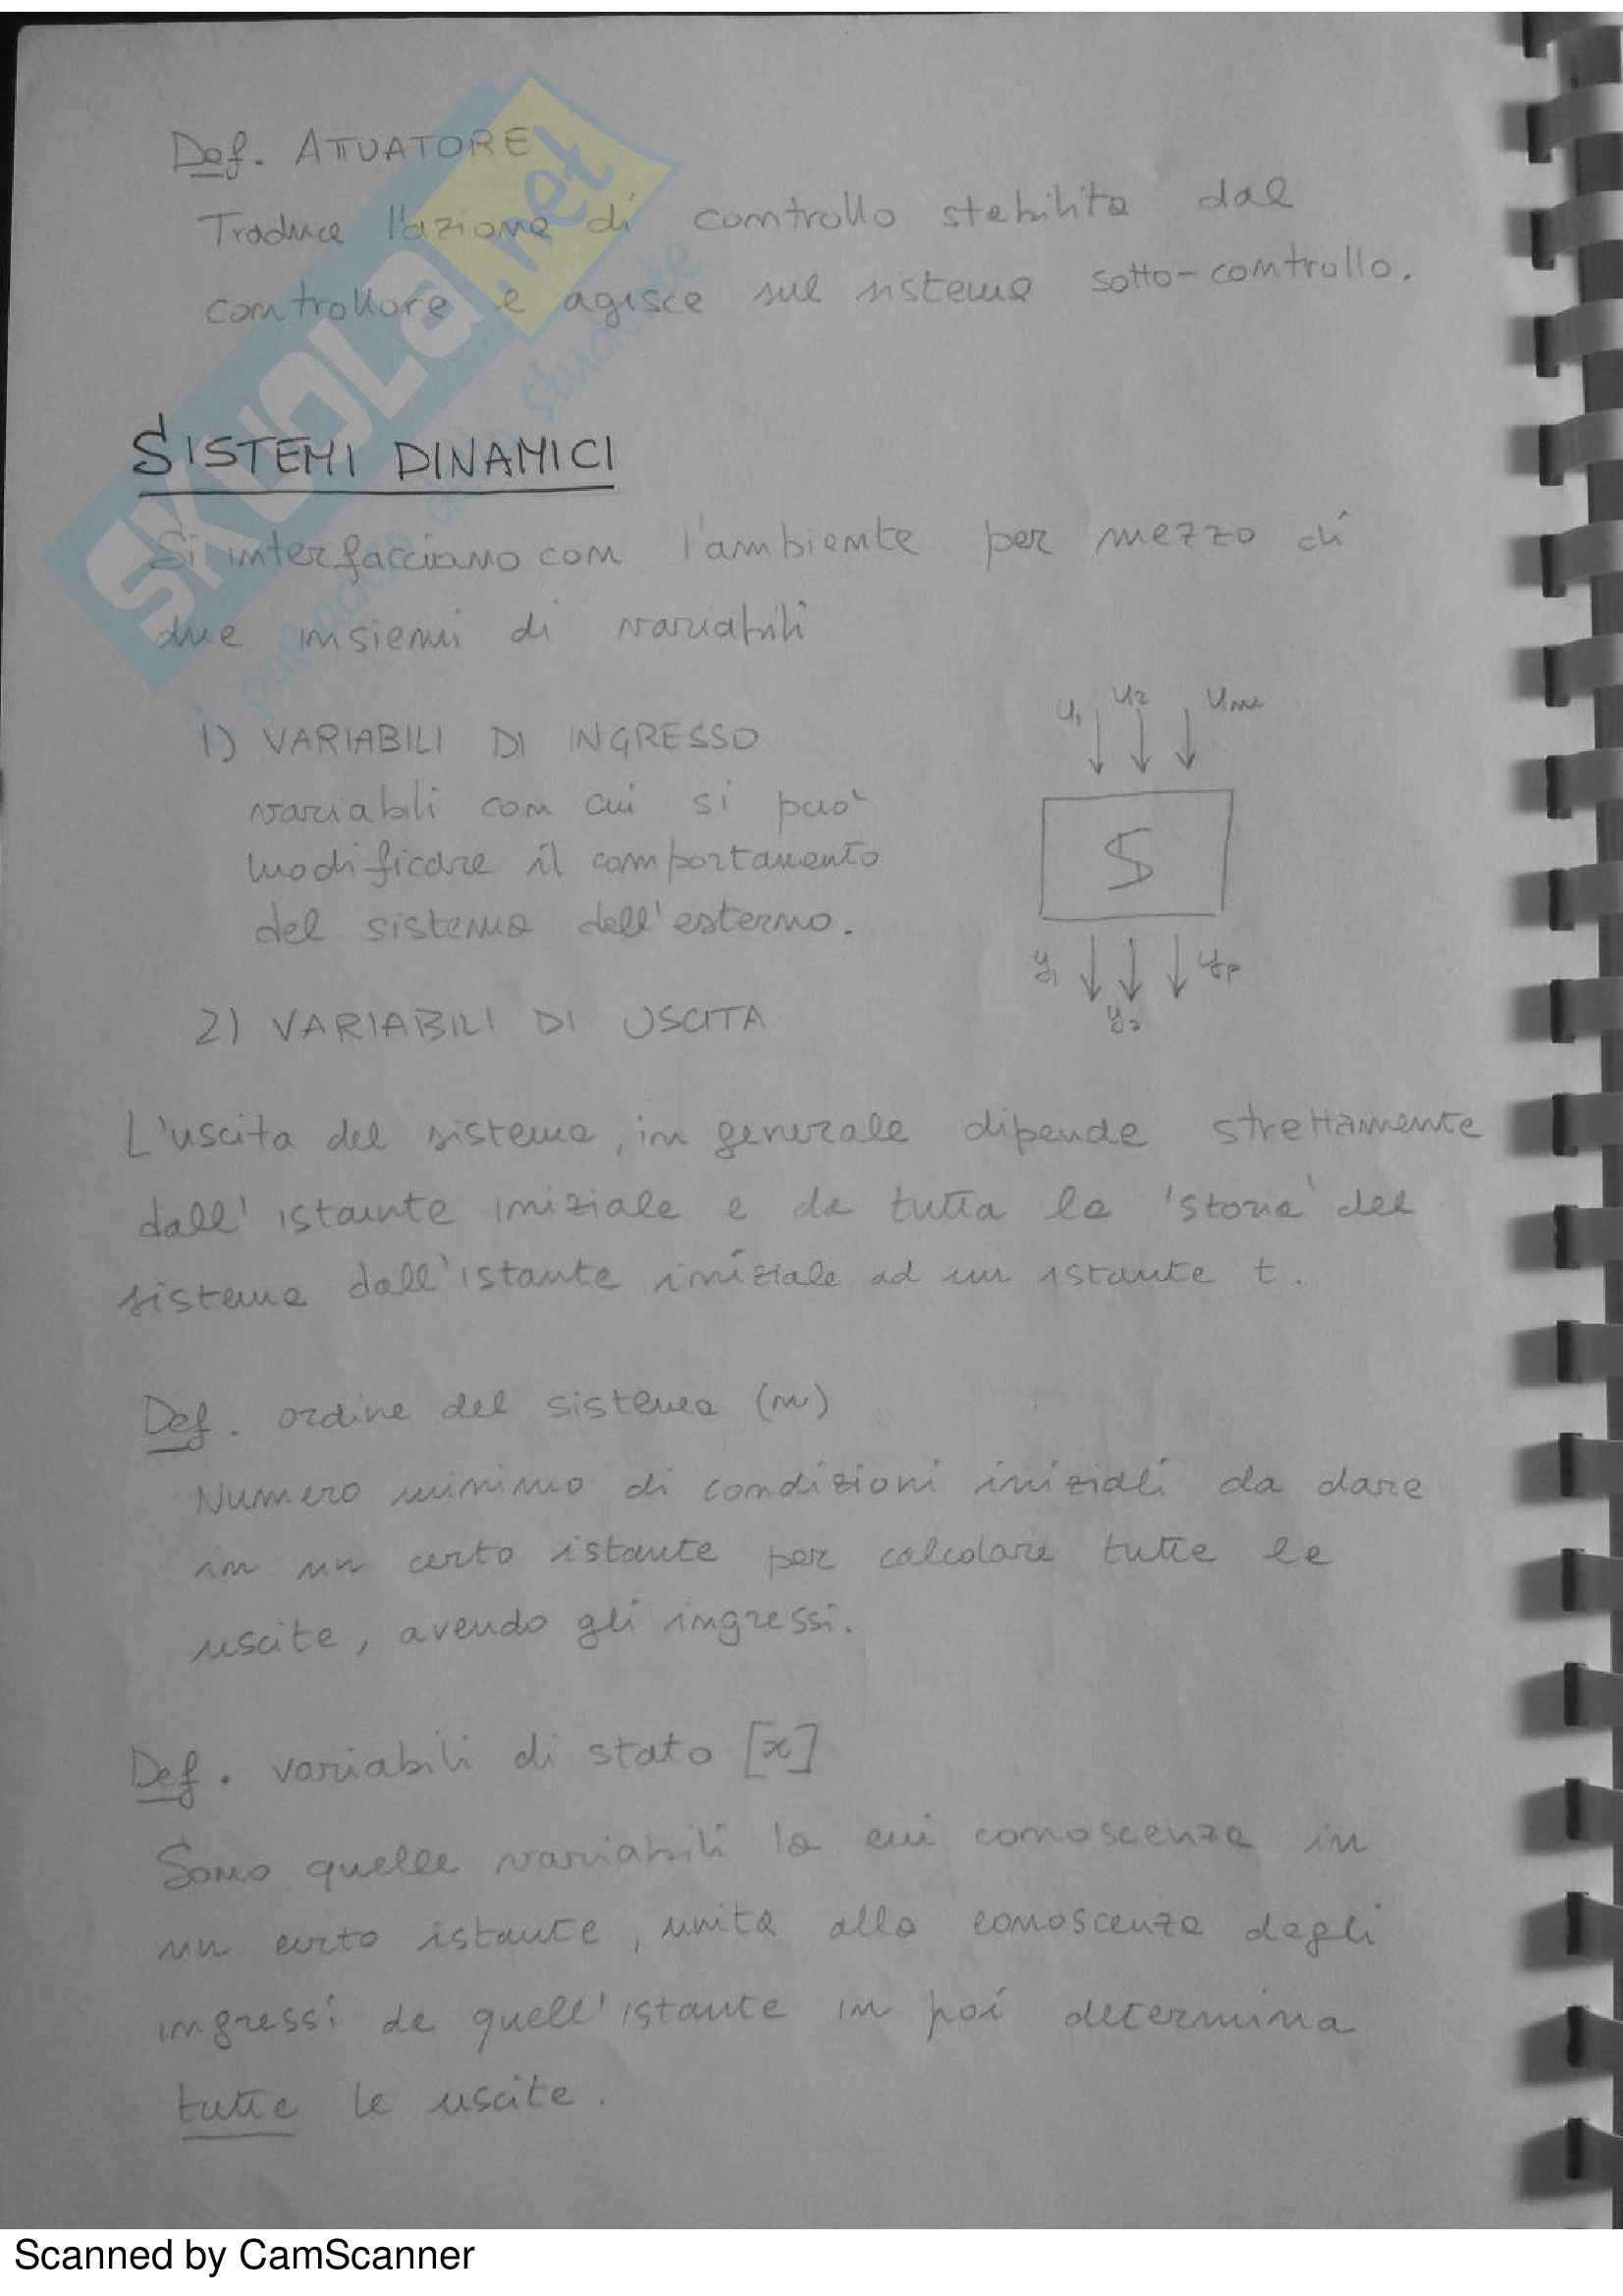 Def. ATTUATORE
Traduce l'azione di controllo stabilita dal
controllore e agisce sul sistema sotto-controllo.
SISTEMI DINAMICI
Si interfacciano con l'ambiente per mezzo di
due insiemi di variabili
1) VARIABILI DI INGRESSO
variabili con cui si può
modificare il comportamento
del sistema dall'esterno.
u1 u2 um
S
y1 y2 yp
2) VARIABILI DI USCITA
L'uscita del sistema, in generale dipende strettamente
dall'istante iniziale e da tutta la 'storia' del
sistema dall'istante iniziale ad un istante t.
Def. ordine del sistema (n)
Numero minimo di condizioni iniziali da dare
in un certo istante per calcolare tutte le
uscite, avendo gli ingressi.
Def. variabili di stato [x]
Sono quelle variabili la cui conoscenza in
un certo istante, unita alla conoscenza degli
ingressi da quell'istante in poi determina
tutte le uscite.
SKUOLA.net
il paradiso dello studente
Scanned by CamScanner